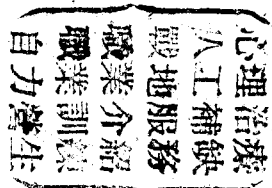 心理治療
人工補缺
地服務
職業介紹
職業訓練
自力營生